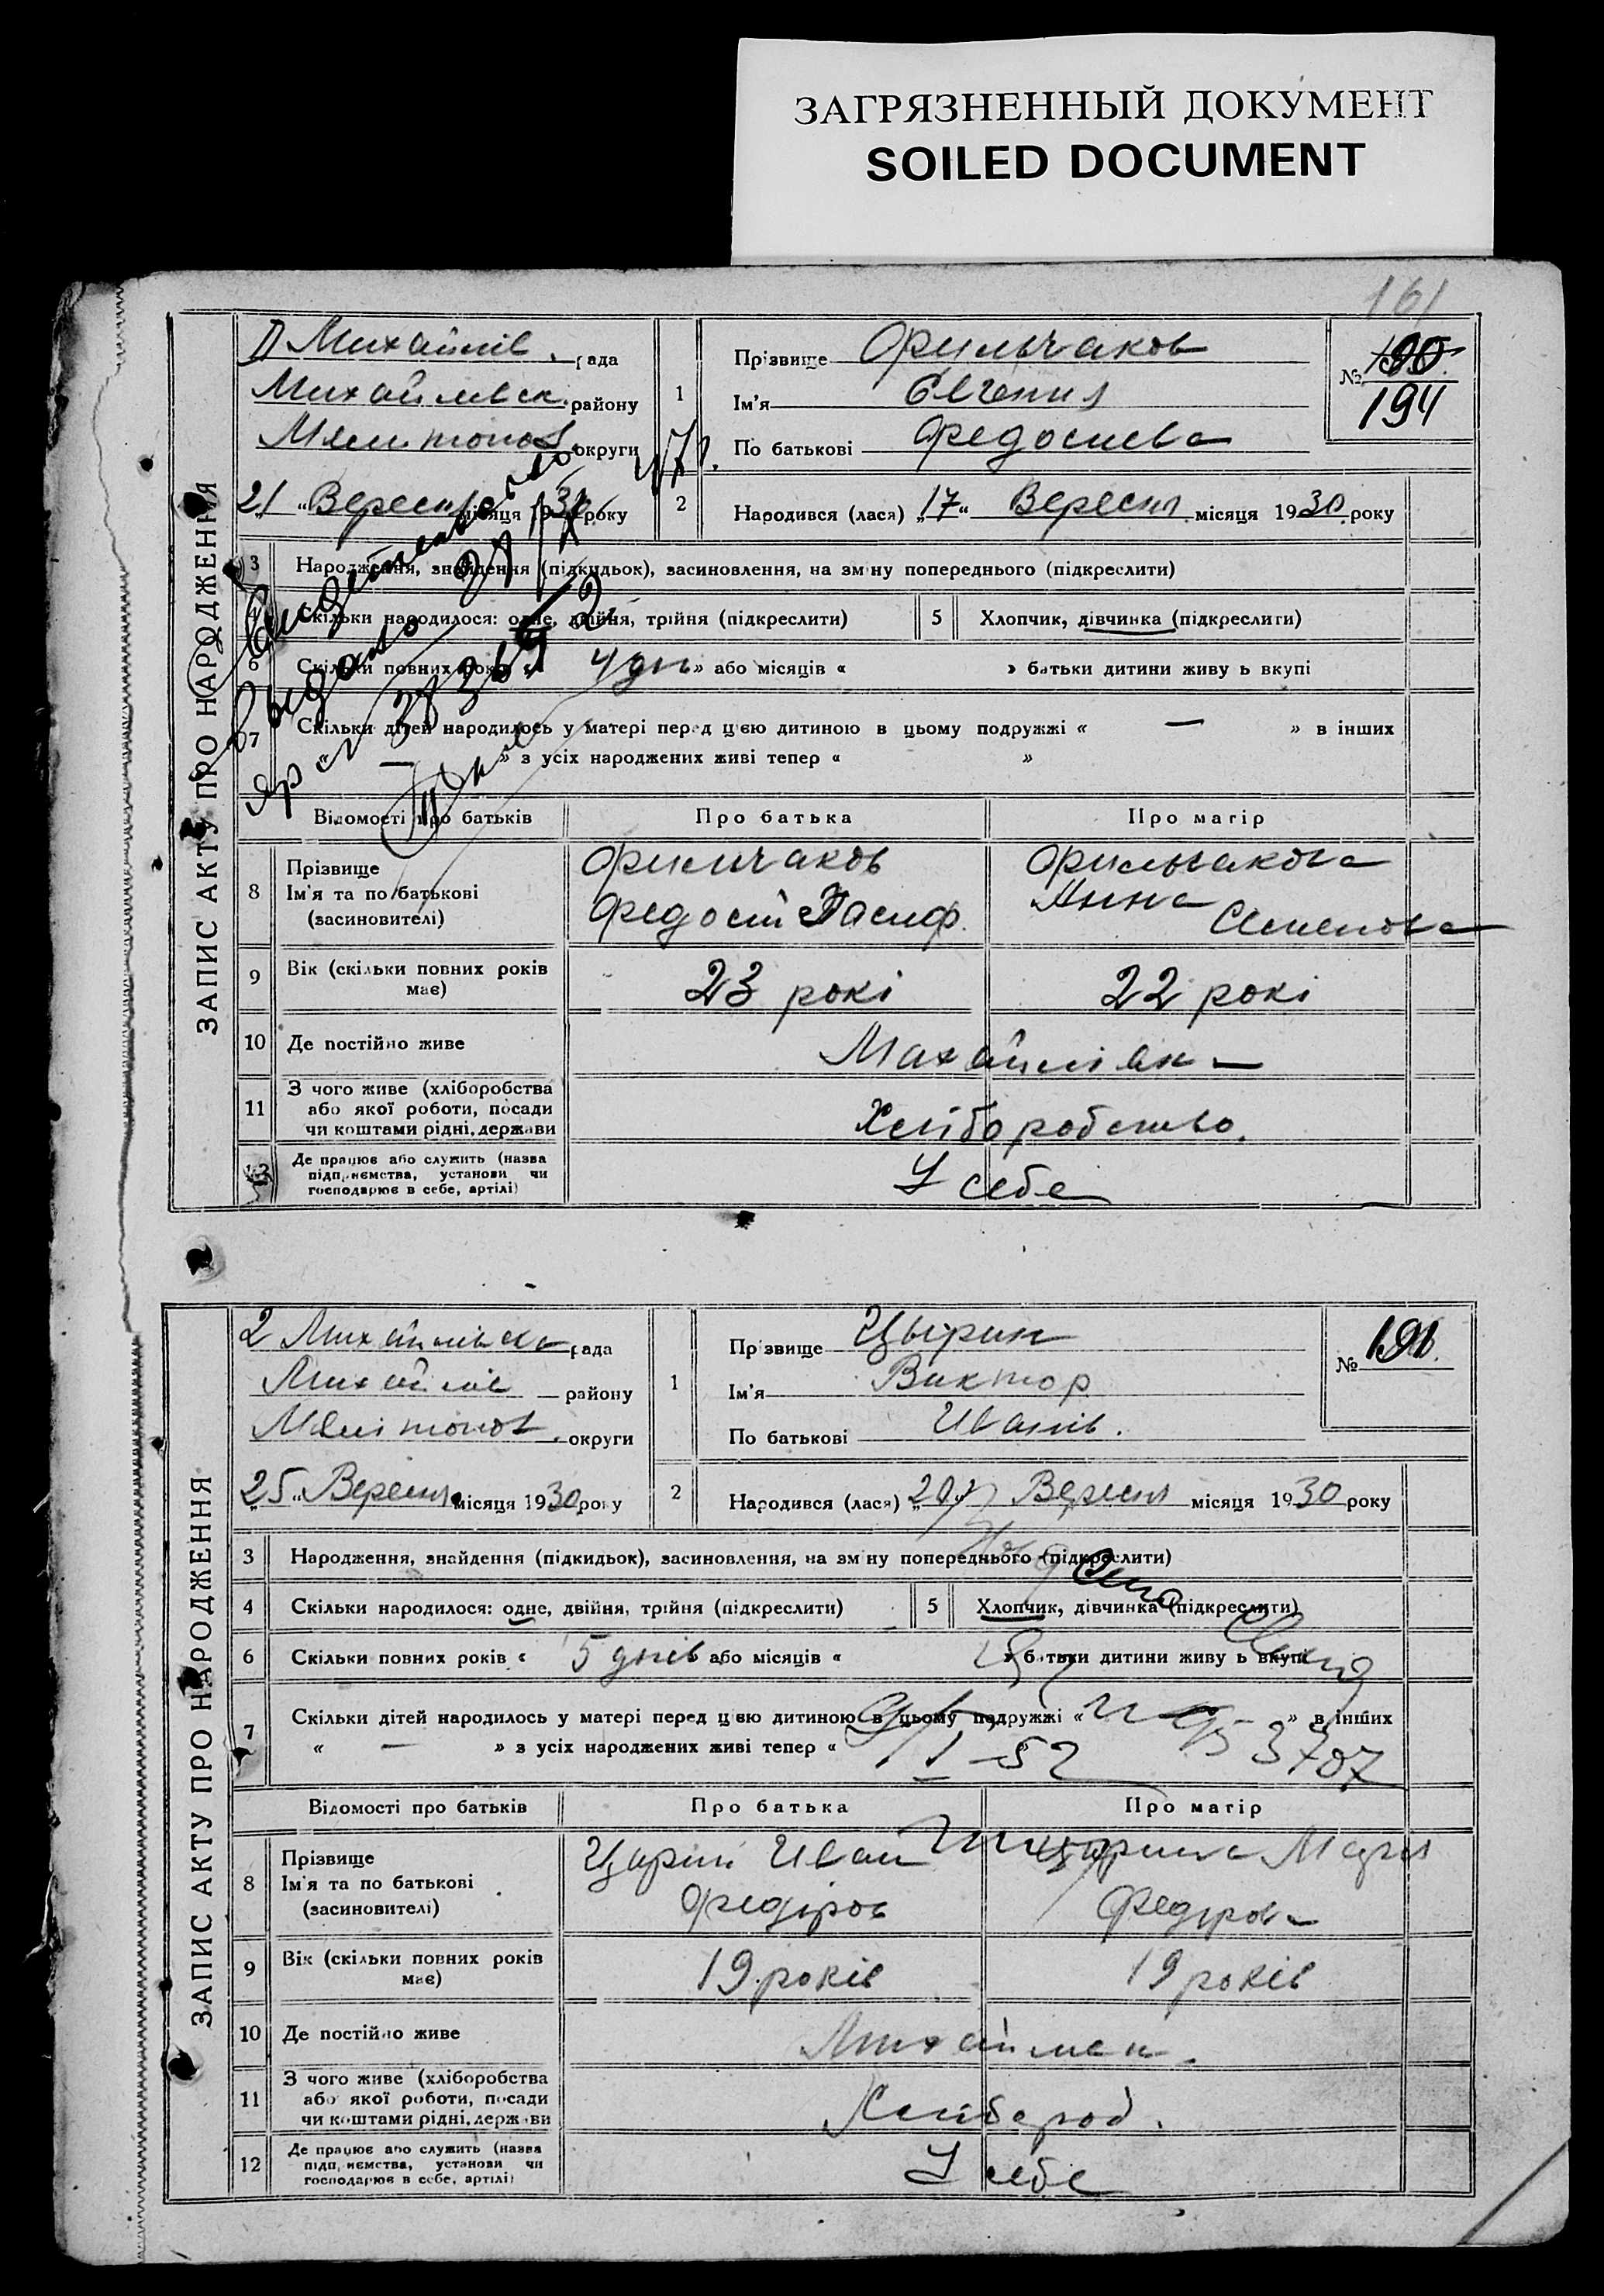 ЗАГРЯЗНЕННЫЙ ДОКУМЕНТ
SOILED DOCUMENT
161
ЗАПИС АКТУ ПРО НАРОДЖЕННЯ
Михайлів. рада
Михайлівск. району
Мелитопол. округи
21 Вересня місяця 1930 року
1
Прізвище Фильчаков
Ім'я Євгения
По батькові Федосиева
№ 190
194
2
Народився (лася) „17“ Вересня місяця 1930 року
3 Народження, знайдення (підкидьок), засиновлення, на зміну попереднього (підкреслити)
4 Скільки народилося: одне, двійня, трійня (підкреслити)
5 Хлопчик, дівчинка (підкреслити)
6 Скільки повних років « 4 дн » або місяців « » батьки дитини живуть вкупі
7 Скільки дітей народилось у матері перед цією дитиною в цьому подружжі « — » в інших
« — » з усіх народжених живі тепер « »
Відомості про батьків Про батька Про матір
8 Прізвище
Ім'я та по батькові
(засиновителі)
Фильчаков
Федосій
Фильчакова
Анна
Семенова
9 Вік (скільки повних років має)
23 рокі
22 рокі
10 Де постійно живе
11 З чого живе (хліборобства
або якої роботи, посади
чи коштами рідні, держави
Хліборобство.
12 Де працює або служить (назва
підприємства, установи чи
господарює в себе, артілі)
У себе
ЗАПИС АКТУ ПРО НАРОДЖЕННЯ
2 Михайлівска рада
Михайлів району
Мелітопол. округи
„25“ Вересня місяця 1930 року
1
Прізвище Цырин
Ім'я Виктор
По батькові Иванів.
№ 191.
2
Народився (лася) „20“ Вересня місяця 1930 року
3 Народження, знайдення (підкидьок), засиновлення, на зміну попереднього (підкреслити)
4 Скільки народилося: одне, двійня, трійня (підкреслити)
5 Хлопчик, дівчинка (підкреслити)
6 Скільки повних років « 5 днів або місяців « » батьки дитини живуть вкупі
7 Скільки дітей народилось у матері перед цією дитиною в цьому подружжі « » в інших
« — » з усіх народжених живі тепер «
Відомості про батьків Про батька Про матір
8 Прізвище
Ім'я та по батькові
(засиновителі)
Иван
Федіров
Федірова
9 Вік (скільки повних років має)
19 років
19 років
10 Де постійно живе
11 З чого живе (хліборобства
або якої роботи, посади
чи коштами рідні, держави
Хлібороб.
12 Де працює або служить (назва
підприємства, установи чи
господарює в себе, артілі)
У себе